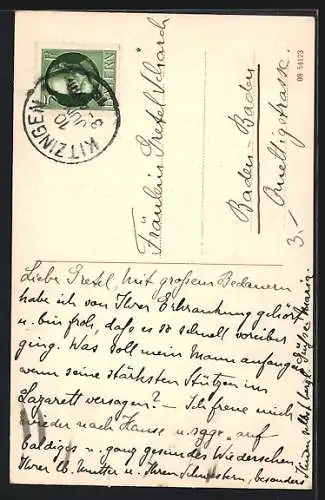 BAYERN
KITZINGEN
8 JUL
10
09 54123
Fräulein Gretel Scharch
Baden-Baden
3.-
Liebe Gretel, mit großem Bedauern
habe ich von Ihrer Erkrankung gehört
u. bin froh, daß es so schnell vorüber
ging. Was soll mein Mann anfangen
wenn seine stärksten Stützen im
Lazarett versagen? - Ich freue mich
wieder nach Hause u. sage "auf
baldiges u. ganz gesundes Wiedersehen,
Ihrer lb. Mutter u. Ihren Schwestern, besonders
Ihnen selbst herzl. Grüße